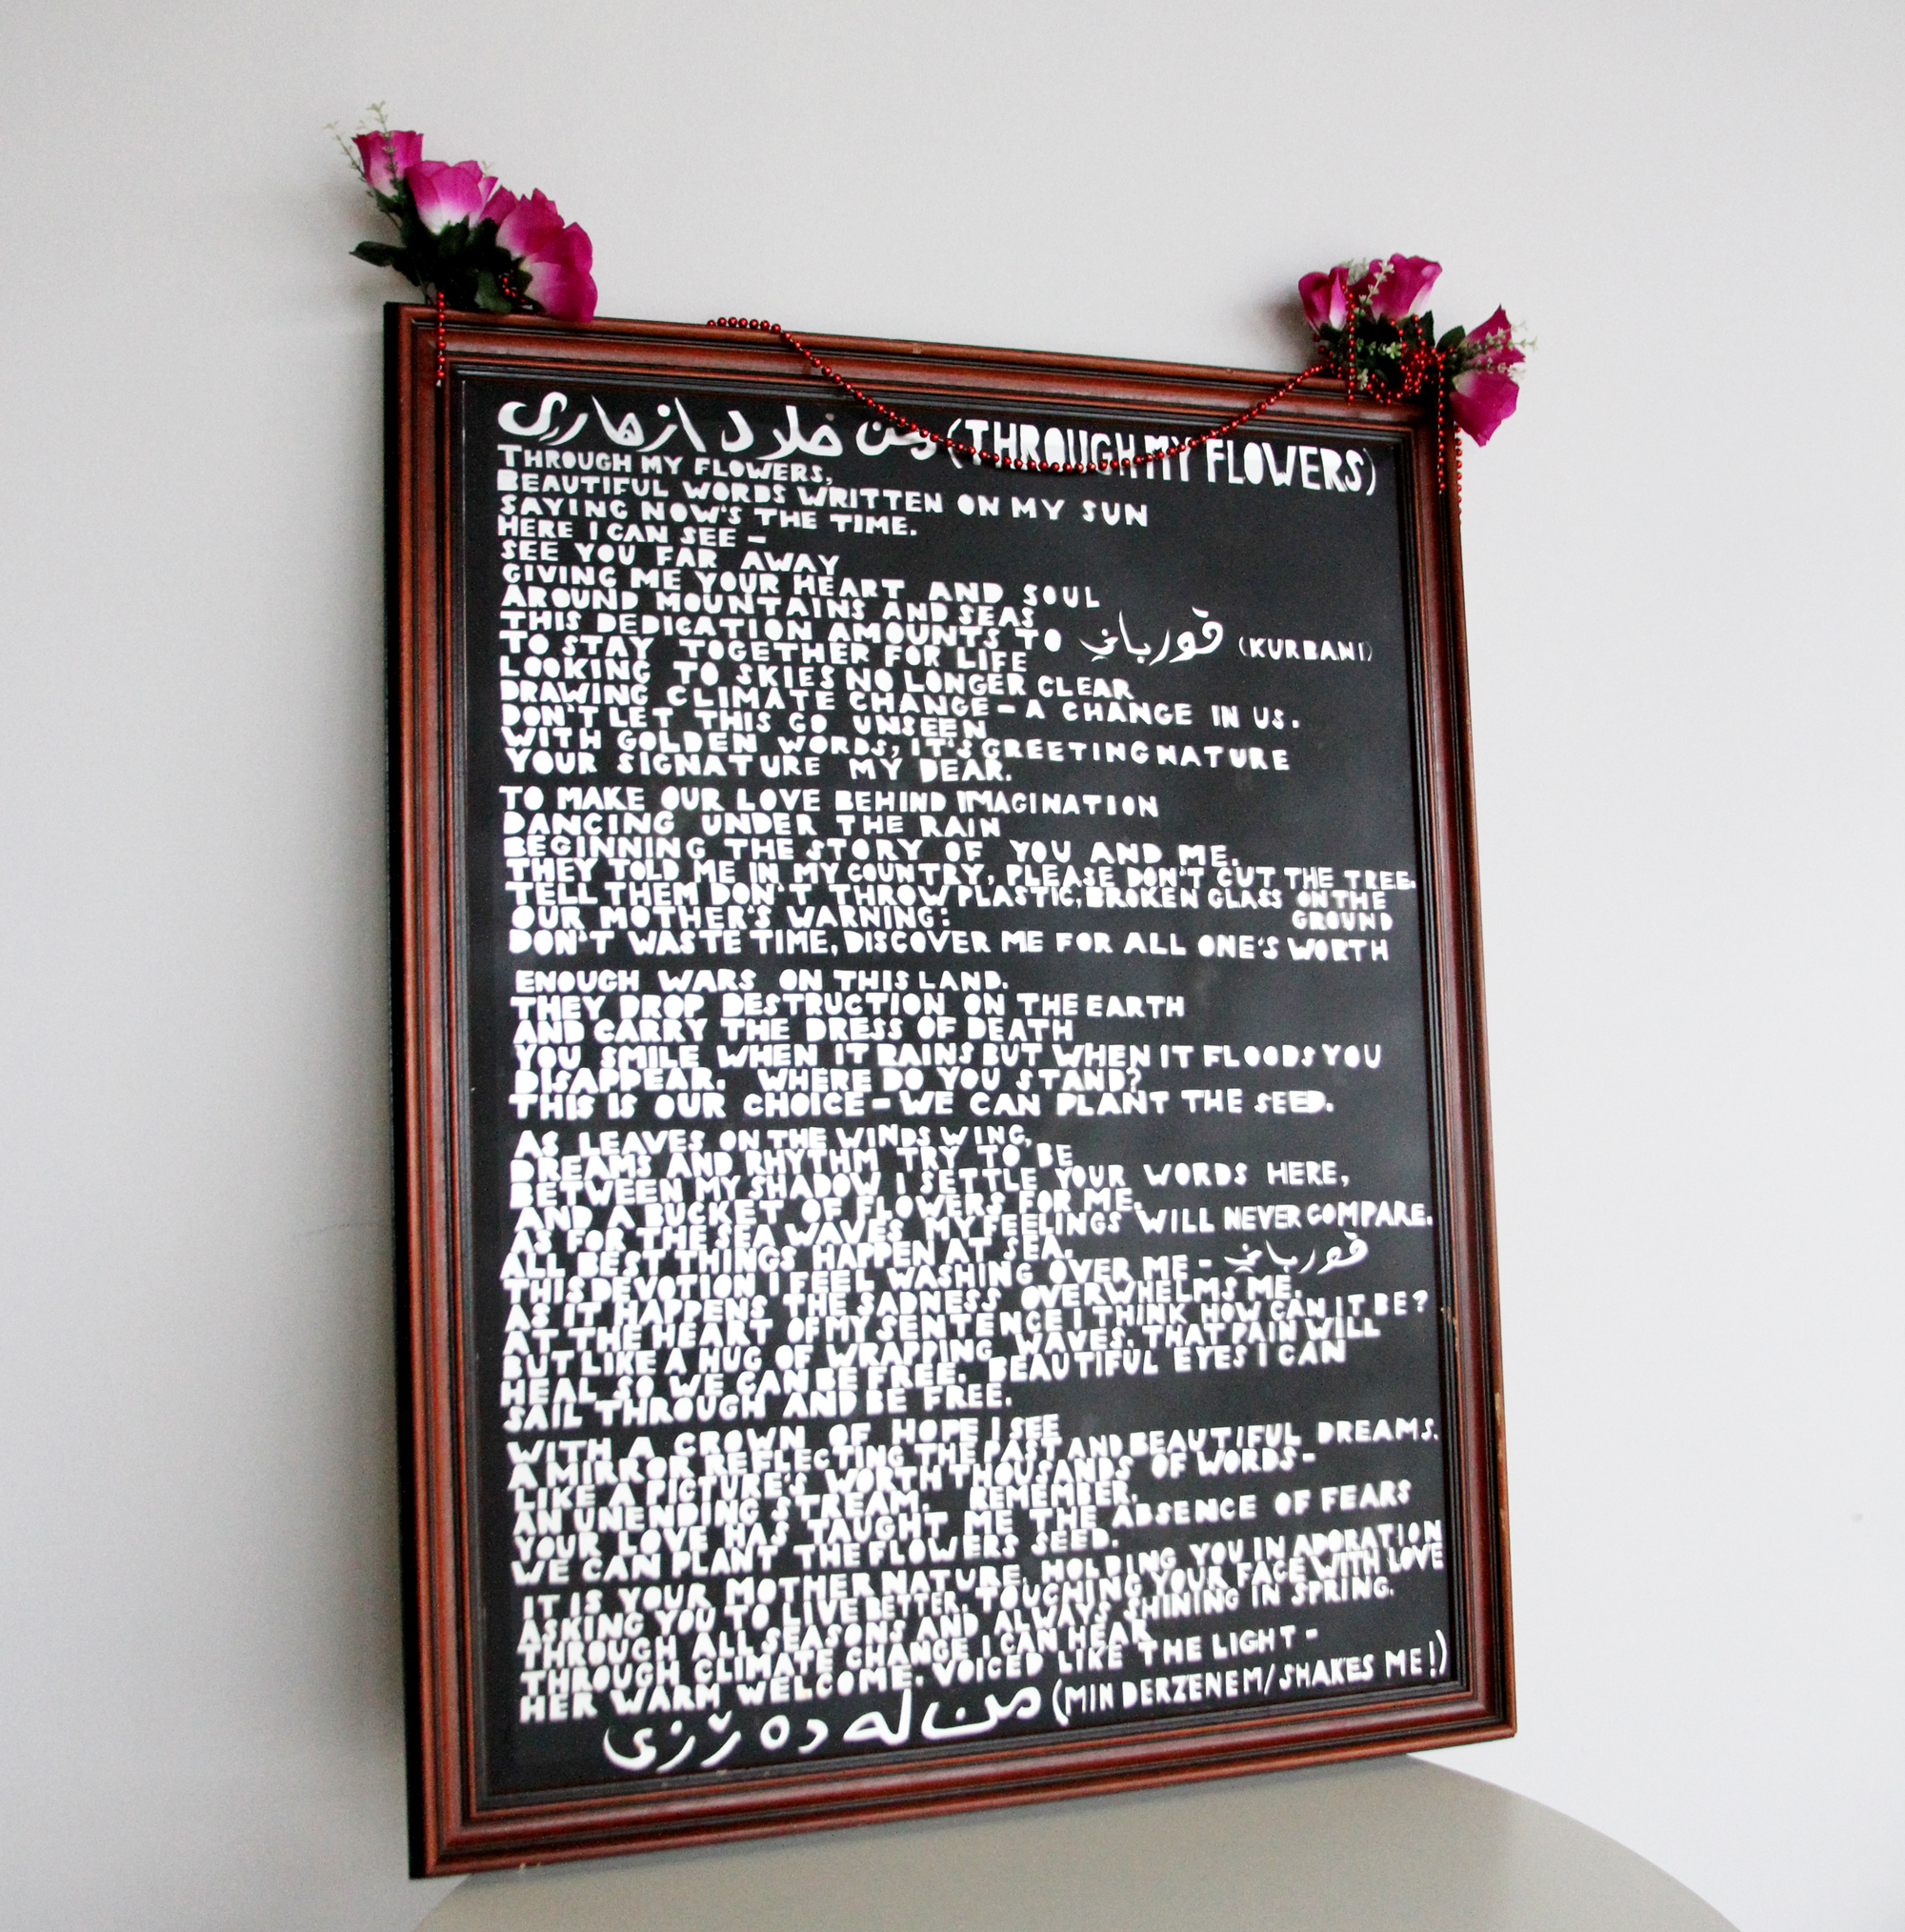 من خلال ازهاري (THROUGH MY FLOWERS)
THROUGH MY FLOWERS,
BEAUTIFUL WORDS WRITTEN ON MY SUN
SAYING NOW'S THE TIME.
HERE I CAN SEE -
SEE YOU FAR AWAY
GIVING ME YOUR HEART AND SOUL
AROUND MOUNTAINS AND SEAS
THIS DEDICATION AMOUNTS TO قورباني (KURBANI)
TO STAY TOGETHER FOR LIFE
LOOKING TO SKIES NO LONGER CLEAR
DRAWING CLIMATE CHANGE - A CHANGE IN US.
DON'T LET THIS GO UNSEEN
WITH GOLDEN WORDS, IT'S GREETING NATURE
YOUR SIGNATURE MY DEAR.
TO MAKE OUR LOVE BEHIND IMAGINATION
DANCING UNDER THE RAIN
BEGINNING THE STORY OF YOU AND ME.
THEY TOLD ME IN MY COUNTRY, PLEASE DON'T CUT THE TREE.
TELL THEM DON'T THROW PLASTIC, BROKEN GLASS ON THE GROUND
OUR MOTHER'S WARNING:
DON'T WASTE TIME, DISCOVER ME FOR ALL ONE'S WORTH
ENOUGH WARS ON THIS LAND.
THEY DROP DESTRUCTION ON THE EARTH
AND CARRY THE DRESS OF DEATH
YOU SMILE WHEN IT RAINS BUT WHEN IT FLOODS YOU
DISAPPEAR. WHERE DO YOU STAND?
THIS IS OUR CHOICE - WE CAN PLANT THE SEED.
AS LEAVES ON THE WINDS WING,
DREAMS AND RHYTHM TRY TO BE
BETWEEN MY SHADOW I SETTLE YOUR WORDS HERE,
AND A BUCKET OF FLOWERS FOR ME.
AS FOR THE SEA WAVES MY FEELINGS WILL NEVER COMPARE.
ALL BEST THINGS HAPPEN AT SEA.
THIS DEVOTION I FEEL WASHING OVER ME - قورباني
AS IT HAPPENS THE SADNESS OVERWHELMS ME.
AT THE HEART OF MY SENTENCE I THINK HOW CAN IT BE?
BUT LIKE A HUG OF WRAPPING WAVES. THAT PAIN WILL
HEAL SO WE CAN BE FREE. BEAUTIFUL EYES I CAN
SAIL THROUGH AND BE FREE.
WITH A CROWN OF HOPE I SEE
A MIRROR REFLECTING THE PAST AND BEAUTIFUL DREAMS.
LIKE A PICTURE'S WORTH THOUSANDS OF WORDS -
AN UNENDING STREAM. REMEMBER.
YOUR LOVE HAS TAUGHT ME THE ABSENCE OF FEARS
WE CAN PLANT THE FLOWERS SEED.
IT IS YOUR MOTHER NATURE, HOLDING YOU IN ADORATION
ASKING YOU TO LIVE BETTER, TOUCHING YOUR FACE WITH LOVE
THROUGH ALL SEASONS AND ALWAYS SHINING IN SPRING.
THROUGH CLIMATE CHANGE I CAN HEAR
HER WARM WELCOME. VOICED LIKE THE LIGHT -
من له ده رزى (MIN DERZENEM/SHAKES ME!)